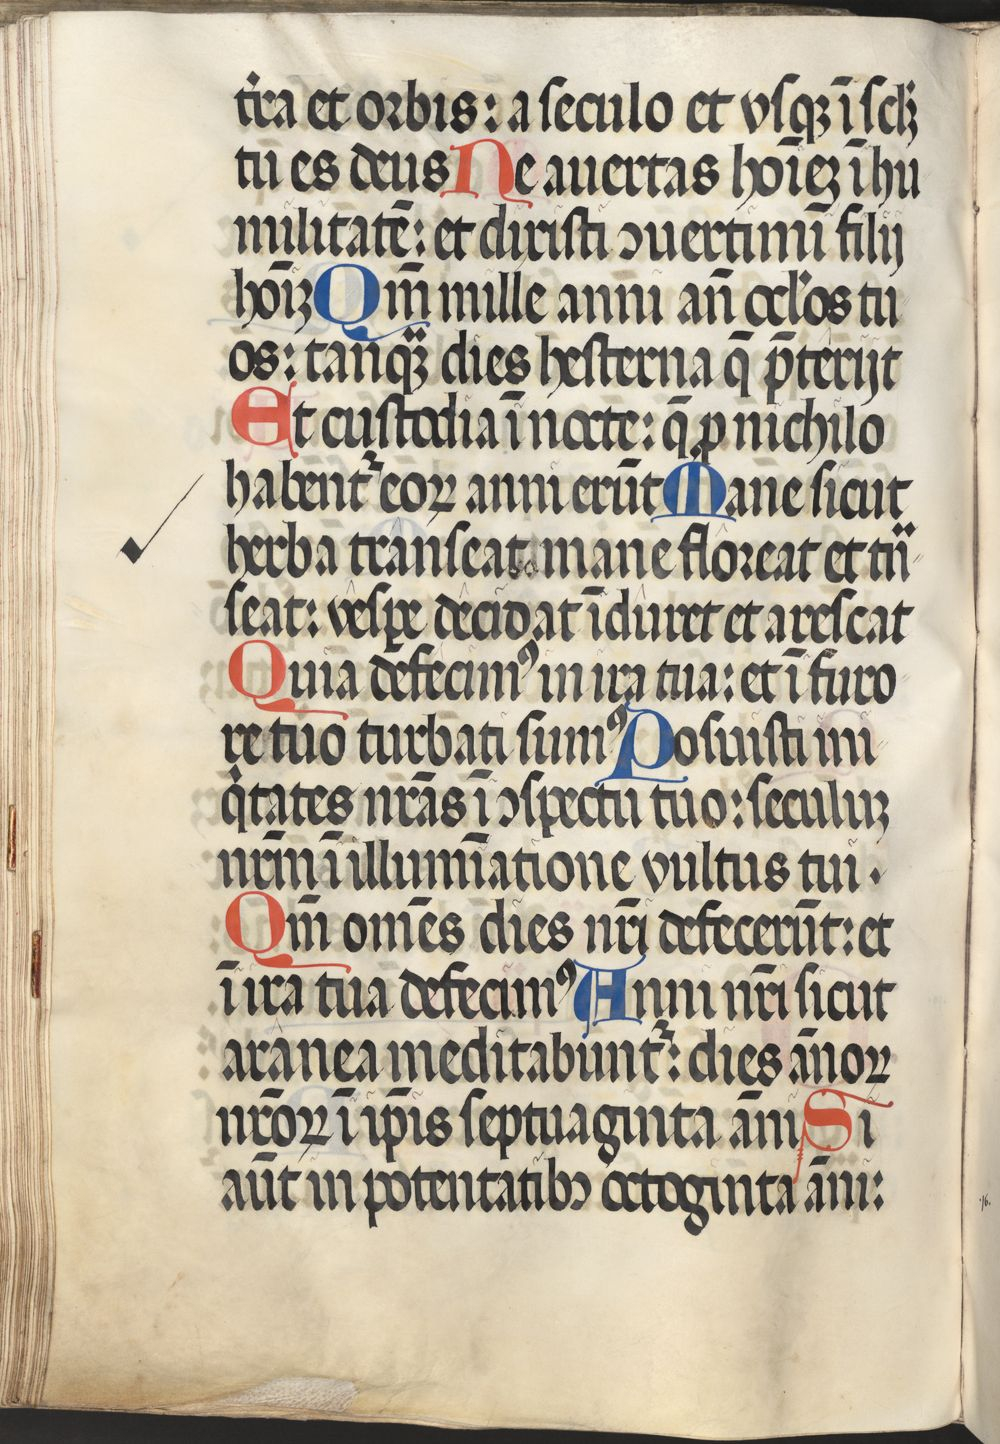 t̉ra et orbis: a seculo et vsqꝫ ī sclꝫ
tu es deus Ne auertas hoīeꝫ ī hu
militatē: et dixisti ↄuertimī filij
hoīꝫ Qm̄ mille anni an̄ ocl̉os tu
os: tanqꝫ̄ dies hesterna q̄ p̄terijt
Et custodia ī nocte: q̄ ꝓ nichilo
habent᷑ eoꝝ anni erūt Mane sicut
herba transeat mane floreat et trā
seat: vesꝑe decidat īduret et arescat
Quia defecimꝰ in ira tua: et ī furo
re tuo turbati sumꝰ Posuisti ini
q̉tates nr̄as ī ↄspectu tuo: seculuꝫ
nr̄m ī illumīatione vultus tui.
Qm̄ om̄es dies nr̄i defecerūt: et
ī ira tua defecimꝰ Anni nr̄i sicut
aranea meditabunt᷑: dies ān̄oꝝ
nr̄oꝝ ī ip̄is septuaginta ān̄i Si
aūt in potentatibꝫ octoginta ān̄i: